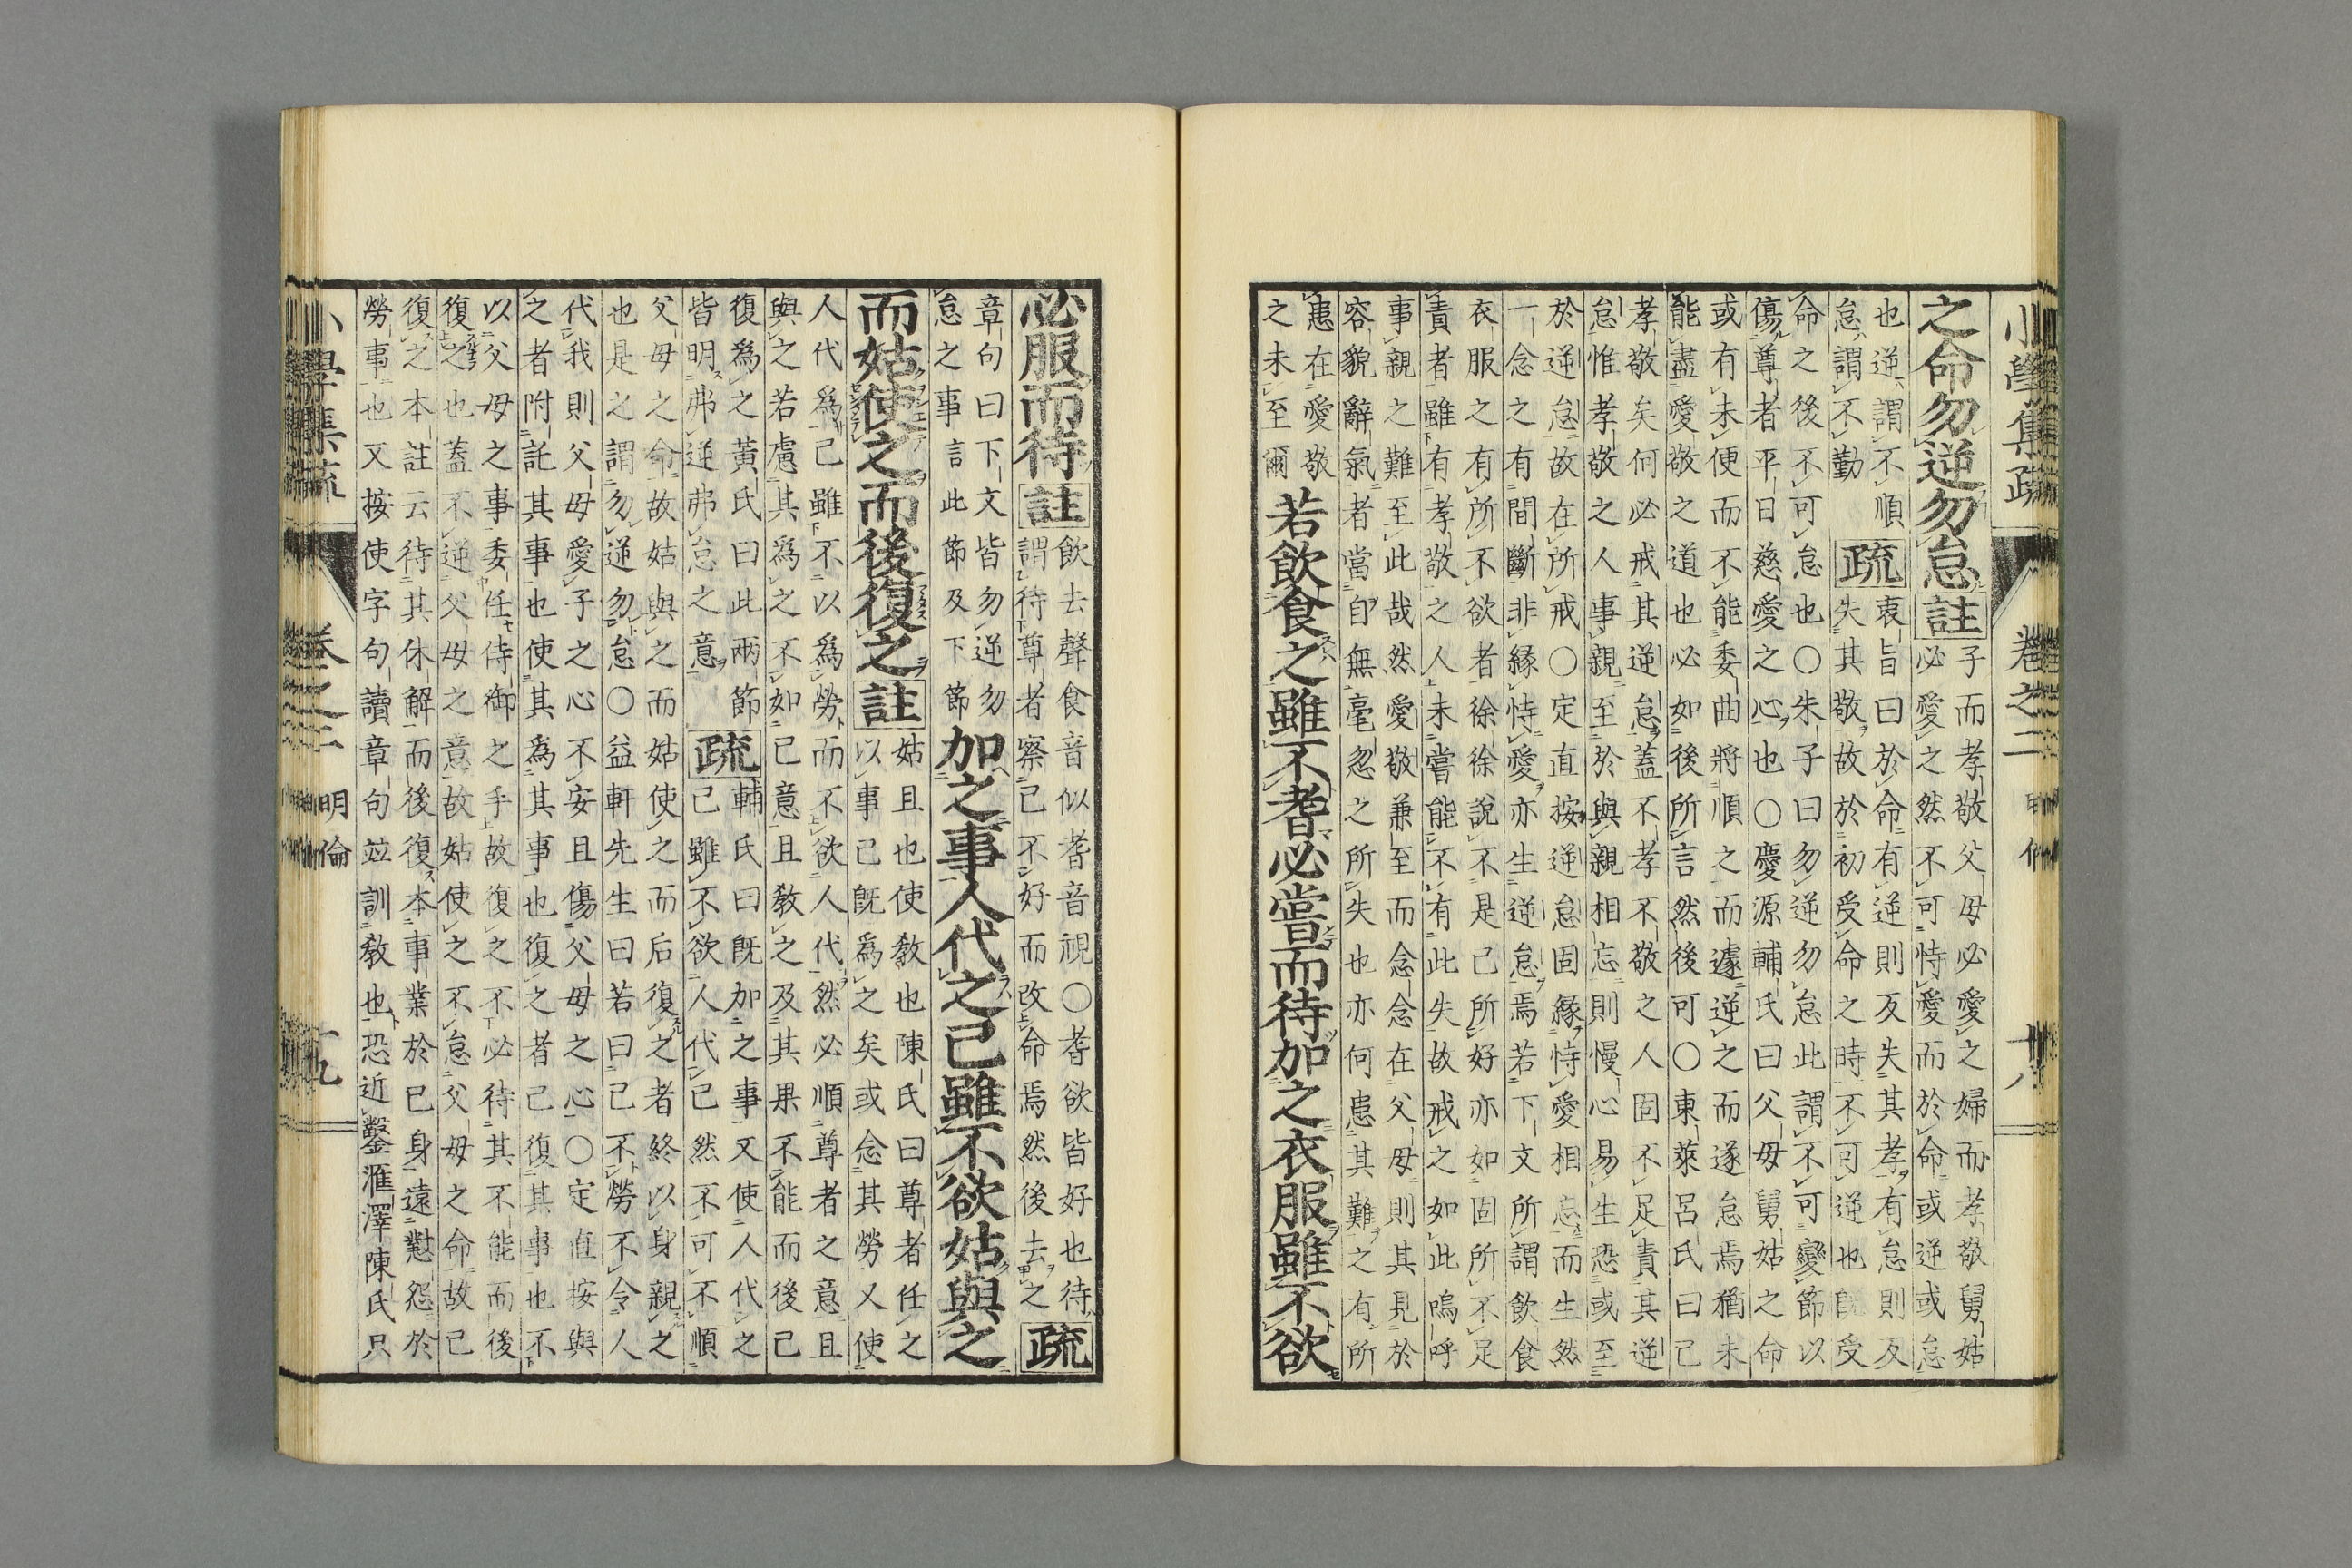 小學集疏　卷之二　明倫　十八
之命勿逆勿怠註
子而孝敬父母必愛之婦而孝敬舅姑
必愛之然不可恃愛而於命或逆或怠
也逆謂不順
怠謂不勤
疏
衷旨曰於命有逆則反失其孝有怠則反
失其敬故於初受命之時不可逆也既受
命之後不可怠也○朱子曰勿逆勿怠此謂不可變節以
傷尊者平日慈愛之心也○慶源輔氏曰父母舅姑之命
或有未便而不能委曲將順之而遽逆之而遂怠焉猶未
能盡愛敬之道也必如後所言然後可○東萊呂氏曰己
孝敬矣何必戒其逆怠蓋不孝不敬之人固不足責其逆
怠惟孝敬之人事親至於與親相忘則慢心易生恐或至
於逆怠故在所戒○定直按逆怠固緣恃愛相忘而生然
一念之有間斷非緣恃愛亦生逆怠焉若下文所謂飲食
衣服之有所不欲者徐徐說不是己所好亦如固所不足
責者雖有孝敬之人未嘗能不有此失故戒之如此嗚呼
事親之難至此哉然愛敬兼至而念念在父母則其見於
容貌辭氣者當自無毫忽之所失也亦何患其難之有所
患在愛敬
之未至爾
若飲食之雖不耆必嘗而待加之衣服雖不欲
必服而待註
飲去聲食音似耆音視○耆欲皆好也待
謂待尊者察己不好而改命焉然後去之
疏
章句曰下文皆勿逆勿
怠之事言此節及下節
加之事人代之己雖不欲姑與之
而姑使之而後復之註
姑且也使敎也陳氏曰尊者任之
以事己既爲之矣或念其勞又使
人代爲己雖不以爲勞而不欲人代然必順尊者之意且
與之若慮其爲之不如己意且敎之及其果不能而後己
復爲之黃氏曰此兩節
皆明弗逆弗怠之意
疏
輔氏曰既加之事又使人代之
己雖不欲人代己然不可不順
父母之命故姑與之而姑使之而后復之者終以身親之
也是之謂勿逆勿怠○益軒先生曰若曰己不勞不令人
代我則父母愛子之心不安且傷父母之心○定直按與
之者附託其事也使其爲其事也復之者己復其事也不
以父母之事委任侍御之手故復之不必待其不能而後
復之也蓋不逆父母之意故姑使之不怠父母之命故已
復之本註云待其休解而後復本事業於已身遠懟怨於
勞事也又按使字句讀章句竝訓敎也恐近鑿滙澤陳氏只
小學集疏　卷之二　明倫　十九